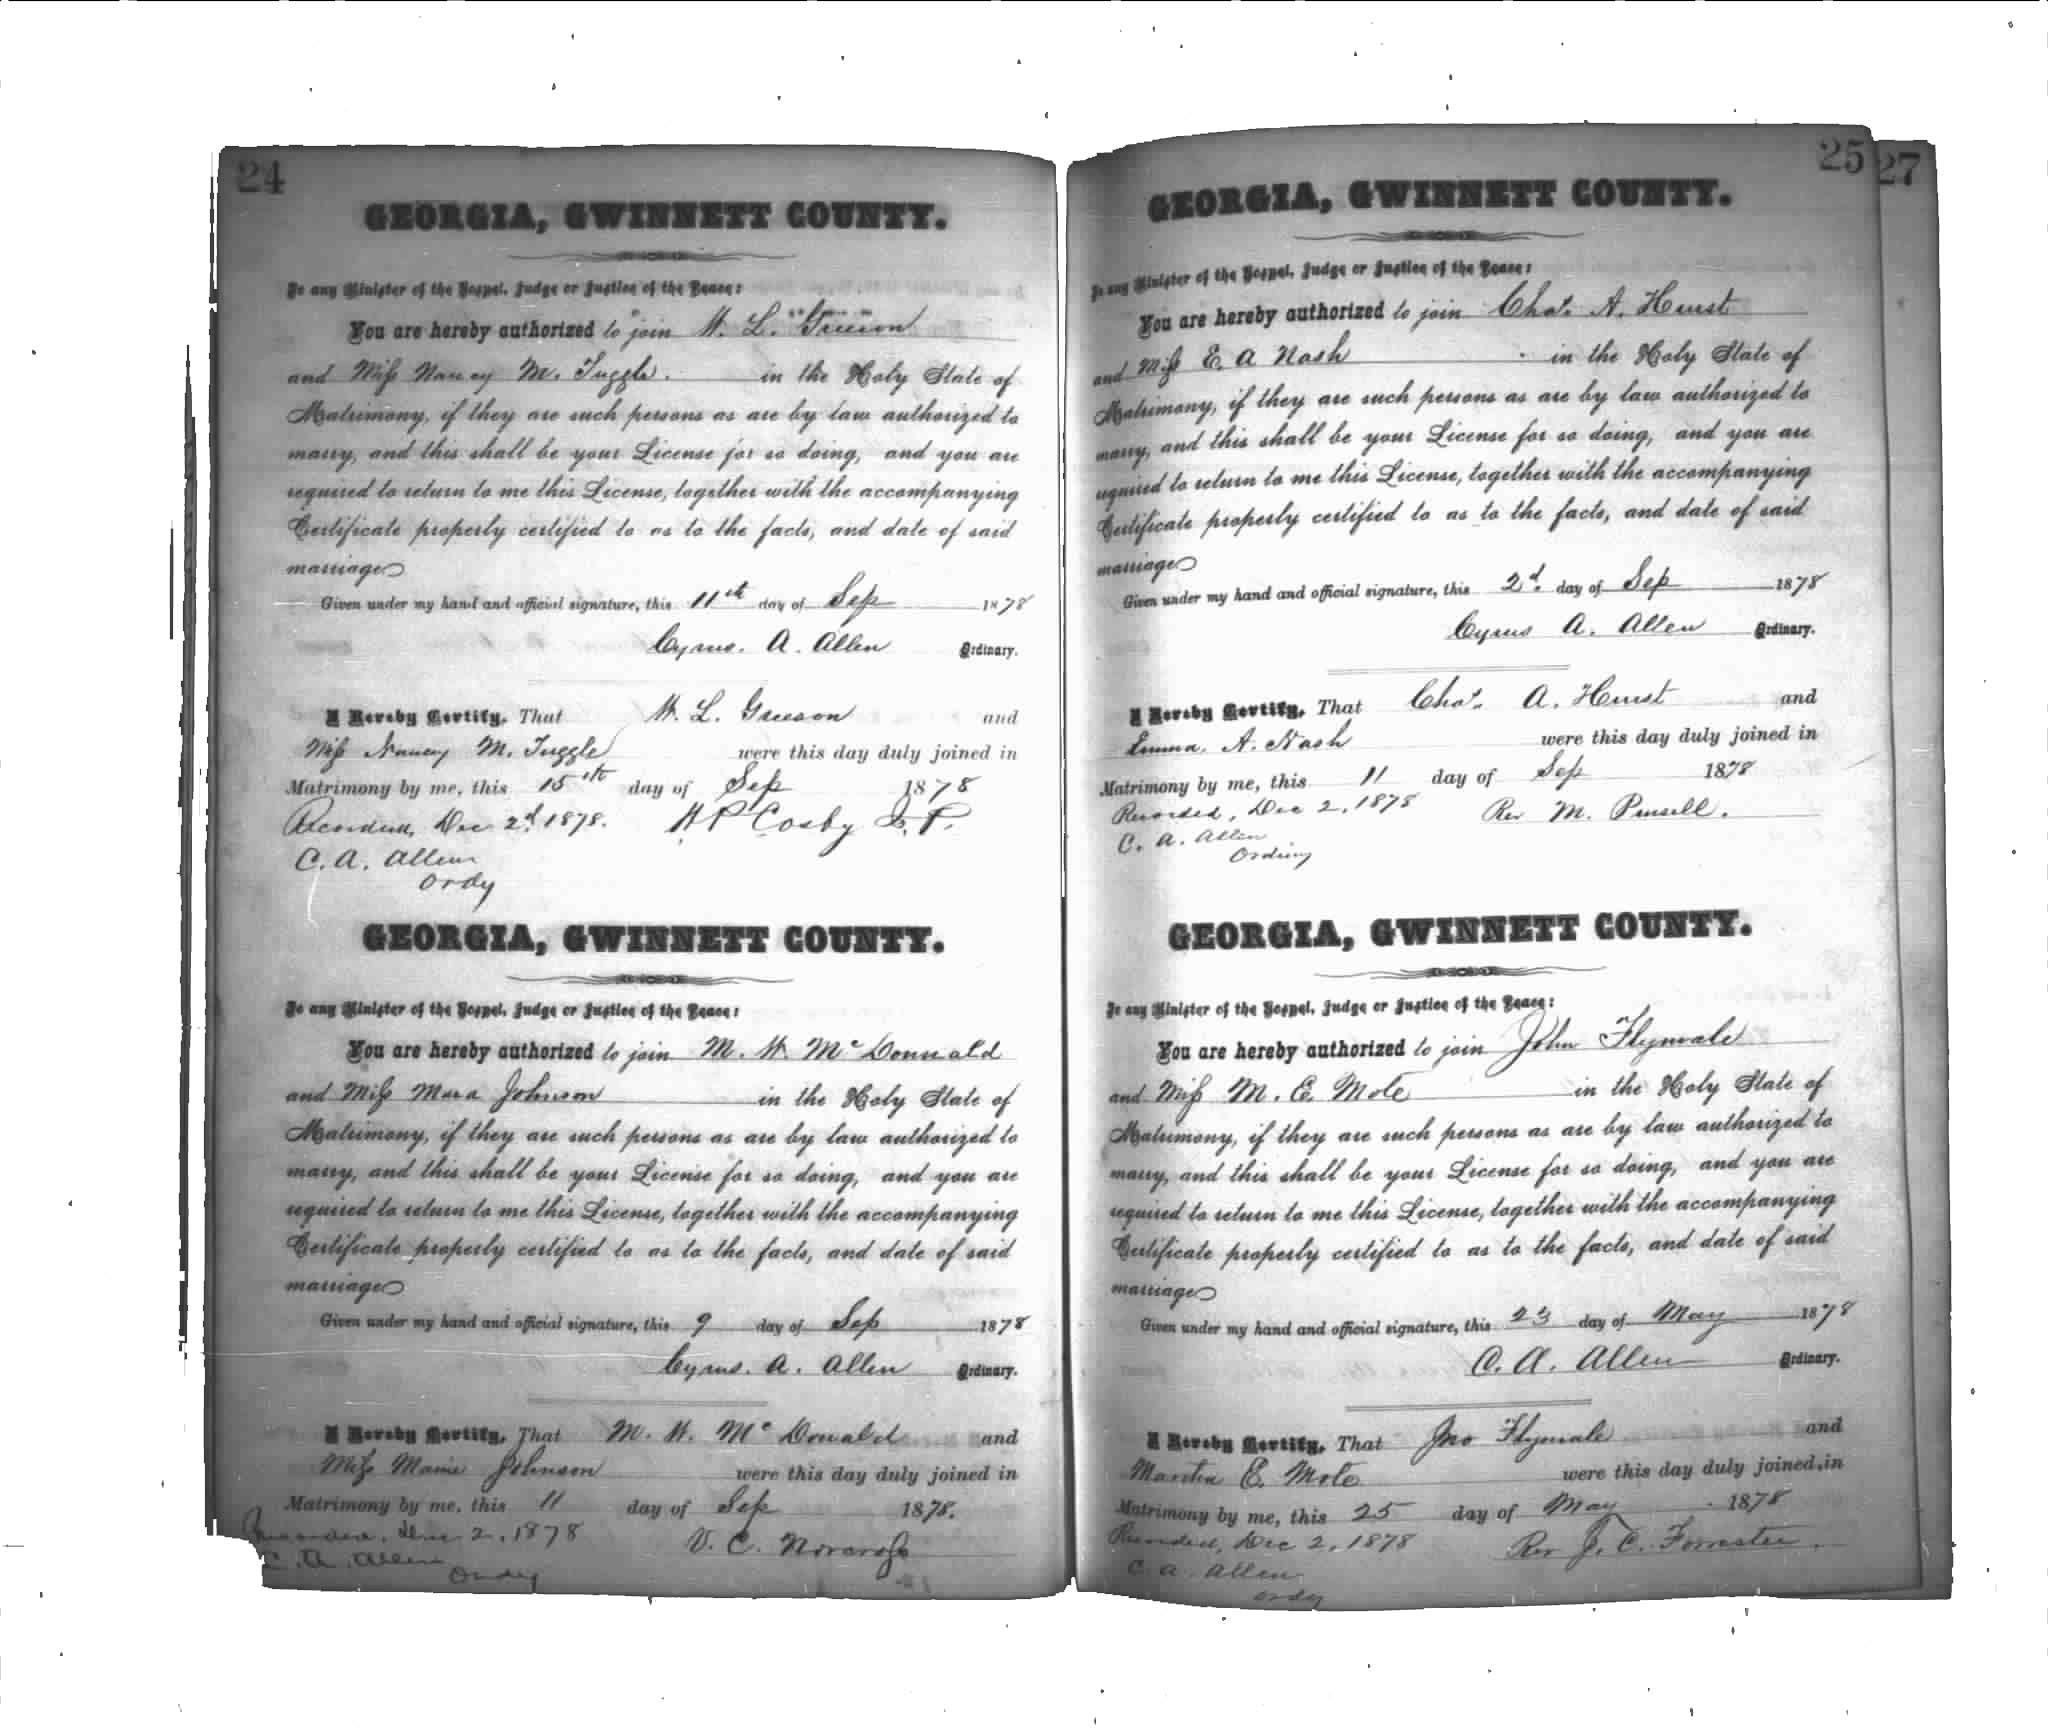 24
GEORGIA, GWINNETT COUNTY.
To any Minister of the Gospel, Judge or Justice of the Peace:
You are hereby authorized to join W. L. Greeson
and Miss Nancy M. Tuggle. in the Holy State of
Matrimony, if they are such persons as are by law authorized to
marry, and this shall be your License for so doing, and you are
required to return to me this License, together with the accompanying
Certificate properly certified to as to the facts, and date of said
marriage
Given under my hand and official signature, this 11th day of Sep 1878
Cyrus. A. Allen Ordinary.
I Hereby Certify, That W. L. Greeson and
Miss Nancy M. Tuggle were this day duly joined in
Matrimony by me, this 15th day of Sep 1878
Recorded, Dec 2d 1878. H P Cosby J. P.
C. A. Allen
Ordy
GEORGIA, GWINNETT COUNTY.
To any Minister of the Gospel, Judge or Justice of the Peace:
You are hereby authorized to join M. W. McDonnald
and Miss Mara Johnson in the Holy State of
Matrimony, if they are such persons as are by law authorized to
marry, and this shall be your License for so doing, and you are
required to return to me this License, together with the accompanying
Certificate properly certified to as to the facts, and date of said
marriage
Given under my hand and official signature, this 9 day of Sep 1878
Cyrus. A. Allen Ordinary.
I Hereby Certify, That M. W. McDonald and
Miss Johnson were this day duly joined in
Matrimony by me, this 11 day of Sep 1878.
Recorded, Dec 2, 1878 V. C. Norcross
C. A. Allen
Ordy
25
27
GEORGIA, GWINNETT COUNTY.
To any Minister of the Gospel, Judge or Justice of the Peace:
You are hereby authorized to join Chas. A. Hurst
and Miss E. A Nash in the Holy State of
Matrimony, if they are such persons as are by law authorized to
marry, and this shall be your License for so doing, and you are
required to return to me this License, together with the accompanying
Certificate properly certified to as to the facts, and date of said
marriage
Given under my hand and official signature, this 2d. day of Sep 1878
Cyrus A. Allen Ordinary.
I Hereby Certify, That Chas. A. Hurst and
Emma. A. Nash were this day duly joined in
Matrimony by me, this 11 day of Sep 1878
Recorded, Dec 2, 1878 Rev M.
C. A. Allen
Ordinary
GEORGIA, GWINNETT COUNTY.
To any Minister of the Gospel, Judge or Justice of the Peace:
You are hereby authorized to join John
and Miss M. E. Mote in the Holy State of
Matrimony, if they are such persons as are by law authorized to
marry, and this shall be your License for so doing, and you are
required to return to me this License, together with the accompanying
Certificate properly certified to as to the facts, and date of said
marriage
Given under my hand and official signature, this 23 day of May 1878
C. A. Allen Ordinary.
I Hereby Certify, That Jno and
Martha E. Mote were this day duly joined in
Matrimony by me, this 25 day of May 1878
Recorded, Dec 2, 1878 Rev J. C. Forrester.
C. A. Allen
Ordy